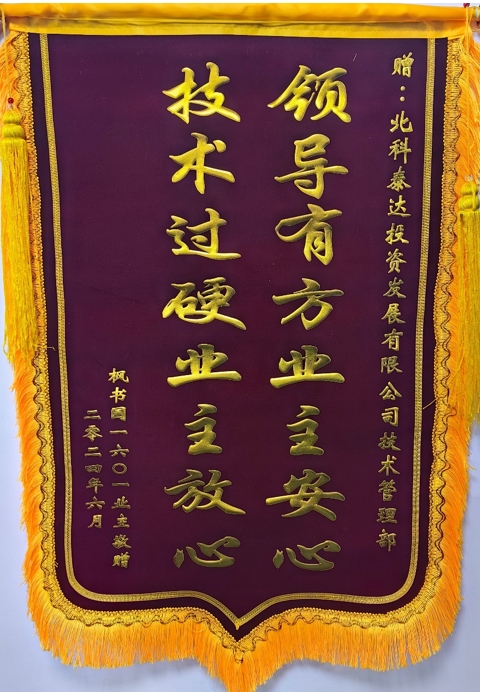 赠：北科泰达投资发展有限公司技术管理部
领导有方业主安心
技术过硬业主放心
枫书园一六〇一业主敬赠
二零二四年六月